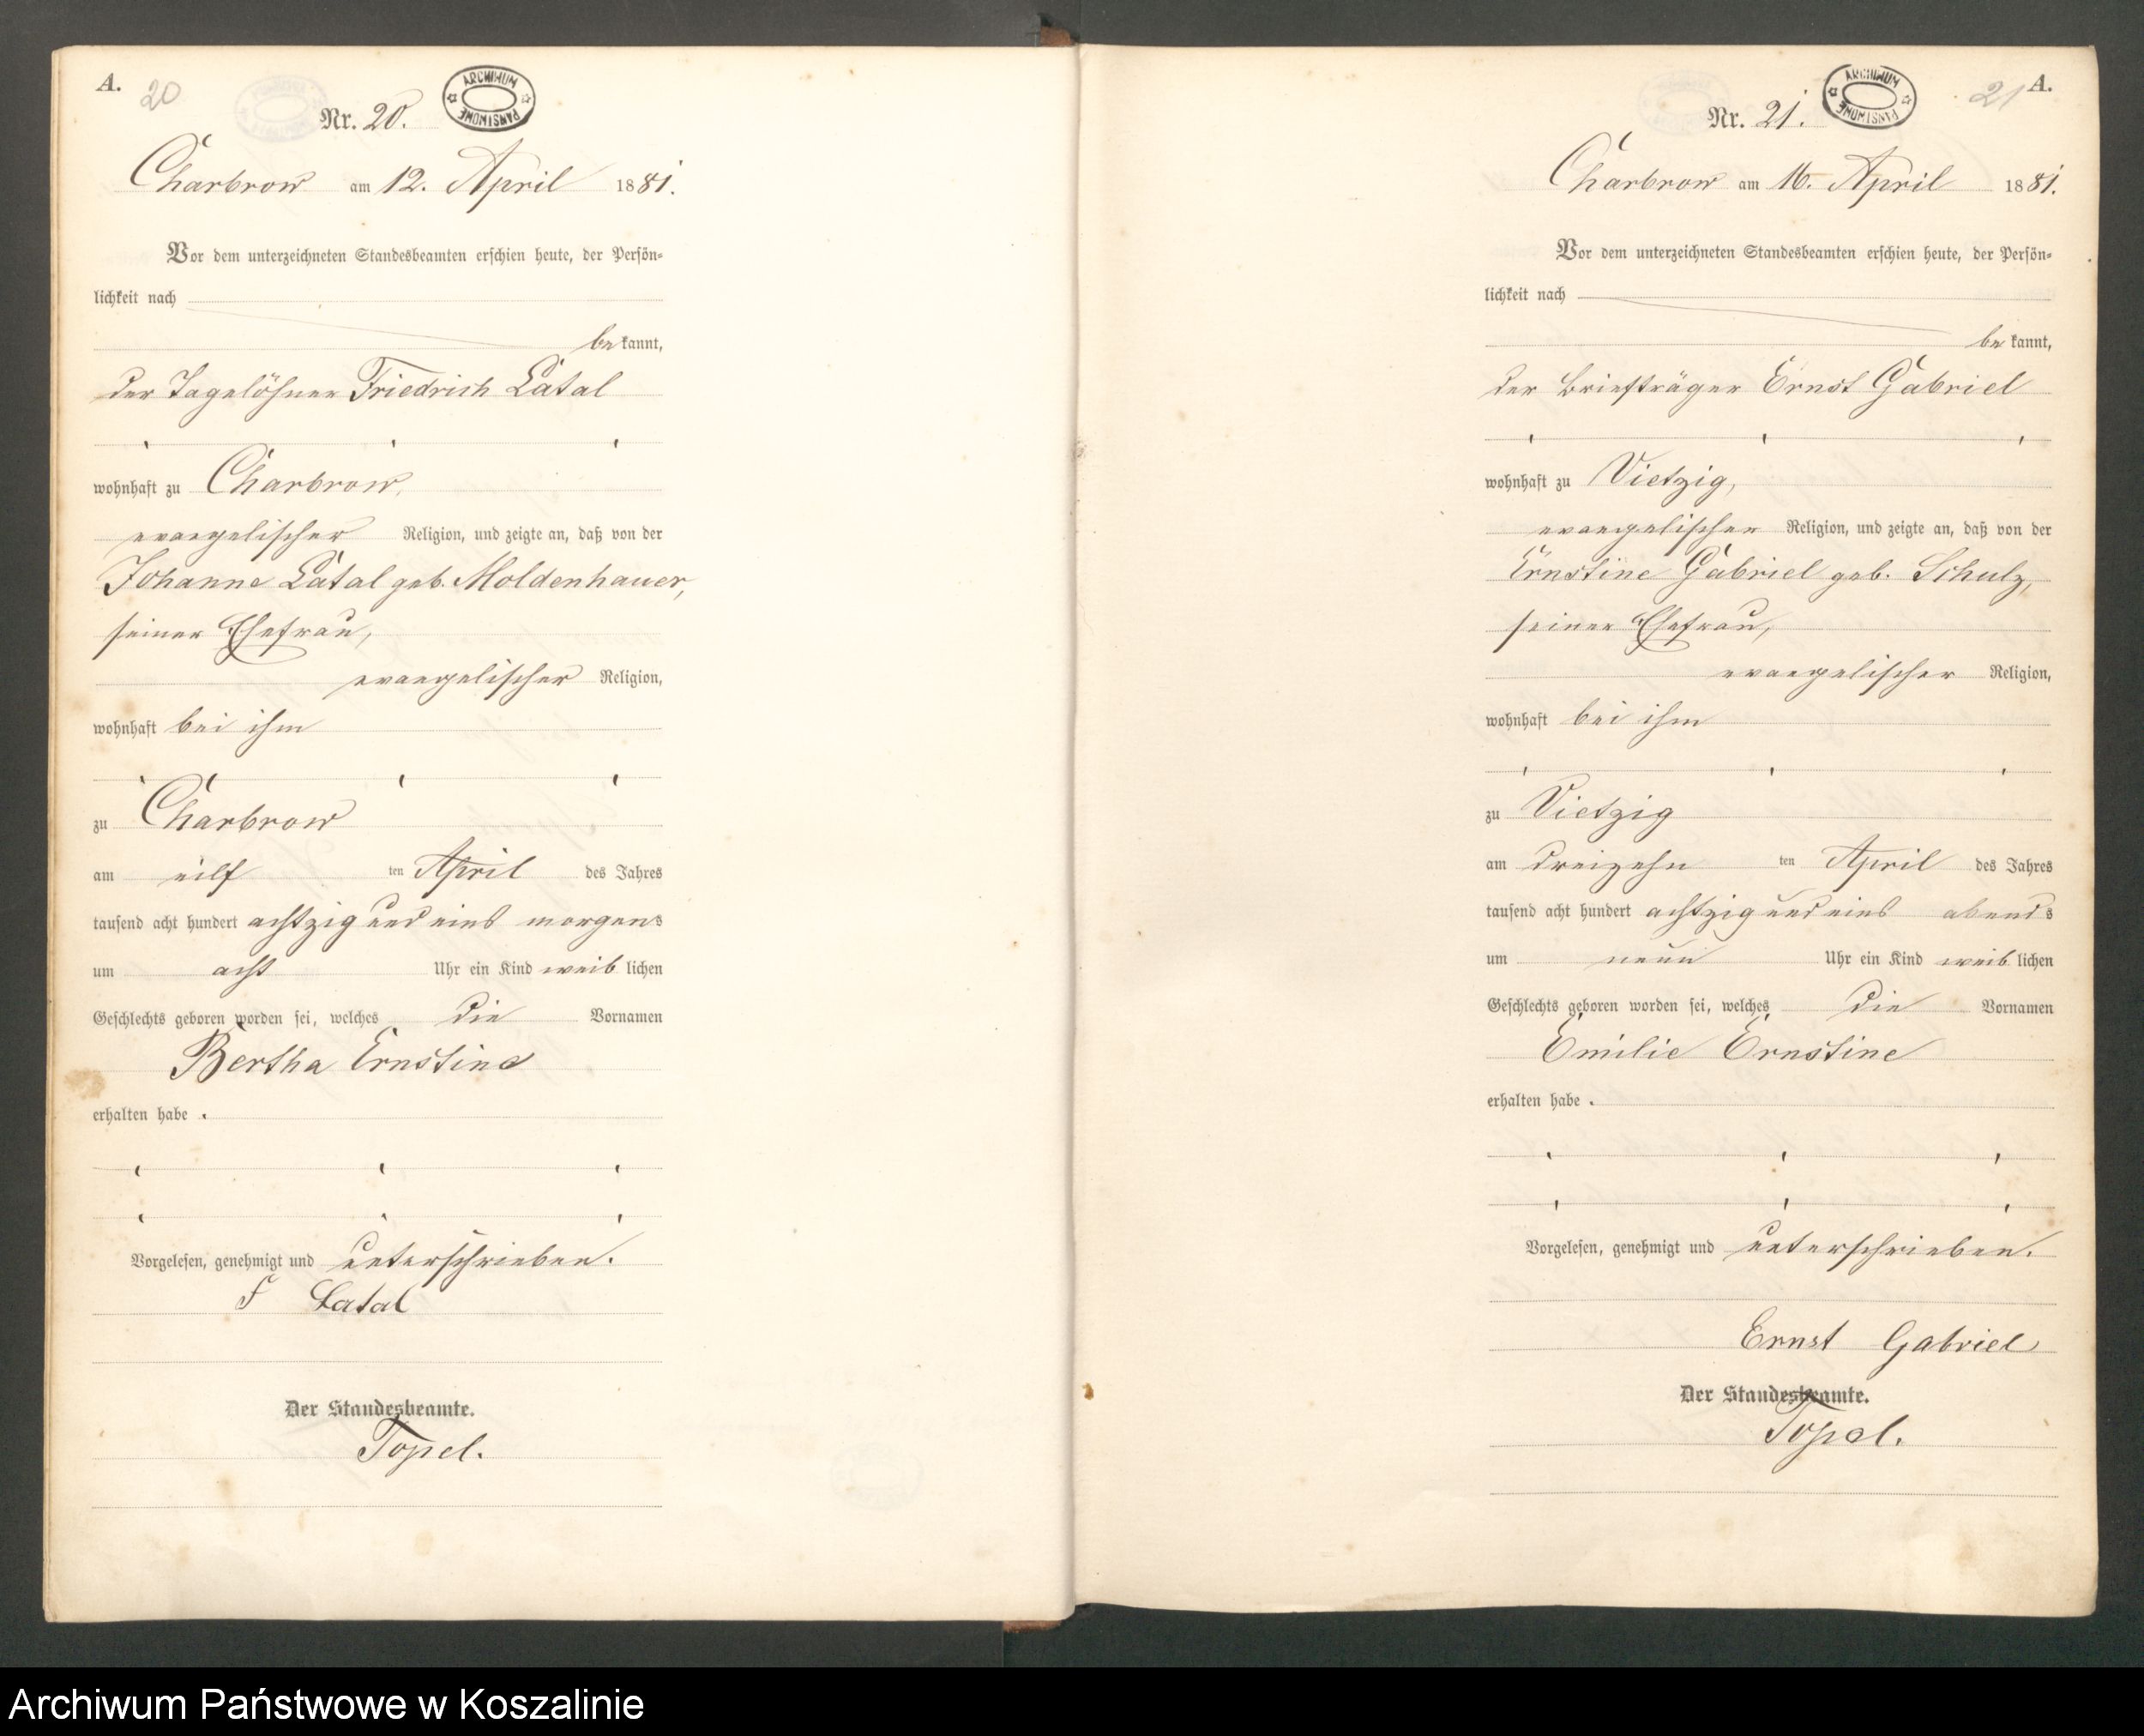 A.
20
ARCHIWUM PAŃSTWOWE
Nr. 20.
Charbrow am 12. April 1881.
Vor dem unterzeichneten Standesbeamten erschien heute, der Persön-
lichkeit nach
bekannt,
der Tagelöhner Friedrich Latal
wohnhaft zu Charbrow,
evangelischer Religion, und zeigte an, daß von der
Johanne Latal geb. Moldenhauer,
seiner Ehefrau,
evangelischer Religion,
wohnhaft bei ihm
zu Charbrow
am eilf ten April des Jahres
tausend acht hundert achtzig und eins morgens
um acht Uhr ein Kind weiblichen
Geschlechts geboren worden sei, welches die Vornamen
Bertha Ernstine
erhalten habe.
Vorgelesen, genehmigt und unterschrieben.
F Latal
Der Standesbeamte.
Topel.
21 A.
ARCHIWUM PAŃSTWOWE
Nr. 21.
Charbrow am 16. April 1881.
Vor dem unterzeichneten Standesbeamten erschien heute, der Persön-
lichkeit nach
bekannt,
der Briefträger Ernst Gabriel
wohnhaft zu Vietzig,
evangelischer Religion, und zeigte an, daß von der
Ernstine Gabriel geb. Schulz,
seiner Ehefrau,
evangelischer Religion,
wohnhaft bei ihm
zu Vietzig
am dreizehn ten April des Jahres
tausend acht hundert achtzig und eins abends
um neun Uhr ein Kind weiblichen
Geschlechts geboren worden sei, welches die Vornamen
Emilie Ernstine
erhalten habe.
Vorgelesen, genehmigt und unterschrieben.
Ernst Gabriel
Der Standesbeamte.
Topel.
Archiwum Państwowe w Koszalinie